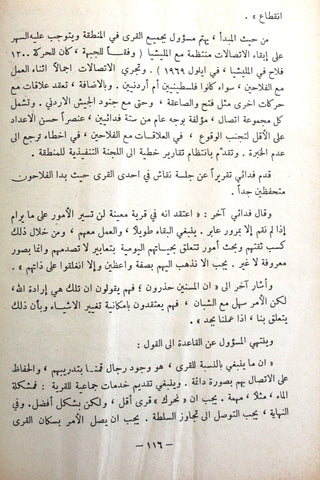 انقطاع » .
من حيث المبدأ ، يهتم مسؤول بجميع القرى في المنطقة ويتوجب عليه السهر
على إبقاء الاتصالات منتظمة مع المليشيا ( وفقاً للجبهة ، كان للحركة ١٢٠٠
فلاح في المليشيا ، في ايلول ١٩٦٩ ) . وتجري الاتصالات اجمالاً اثناء العمل
مع الفلاحين ، سواء كانوا فلسطينيين أم أردنيين . وبالاضافة ، تعقد علاقات مع
حركات اخرى مثل فتح والصاعقة ، وحتى مع جنود الجيش الاردني . وتشمل
كل مجموعة اتصال ، مؤلفة بوجه عام من ستة فدائيين ، عنصراً حسن الاعداد
على الأقل لتجنب الوقوع ، في العلاقات مع الفلاحين ، في اخطاء ترجع الى
عدم الخبرة . وتقدّم بانتظام تقارير خطية الى اللجنة التنفيذية للمنطقة .
قدم فدائي تقريراً عن جلسة نقاش في احدى القرى حيث بدا الفلاحون
متحفظين جداً .
وقال فدائي آخر : « اعتقد انه في قرية معينة لن تسير الأمور على ما يرام
إذا لم نقم إلا بمرور عابر . ينبغي البقاء طويلاً ، والعمل معهم ، ومن خلال ذلك
كسب ثقتهم وبحث أمور تتعلق بحياتهم اليومية بتعابير لا تصدمهم وانما بصور
معروفة لا غير . يجب الا نذهب اليهم بصفة واعظين وإلا انغلقوا على ذاتهم » .
وأشار آخر الى « ان المسنين حذرون ؛ فهم يقولون ان تلك هي إرادة الله ،
لكن الأمر سهل مع الشبان ، فهم يعتقدون بامكانية تغيير الاشياء وبأن ذلك
يتعلق بنا ، اذا عملنا بجد » .
وينتهي المسؤول عن القاعدة الى القول :
« ان ما ينبغي بالنسبة للقرى ، هو وجود رجال قمنا بتدريبهم ، والحفاظ
على الاتصال بهم بصورة دائمة . وينبغي تقديم خدمات جماعية للقرية : فمشكلة
الماء ، مثلاً ، مهمة . يجب ان « نحرك » قرى أقل ، ولكن بشكل أفضل . وفي
النهاية ، يجب التوصل الى تجاوز السلطة . يجب ان يصل الأمر بسكان القرى
– ١١٦ –